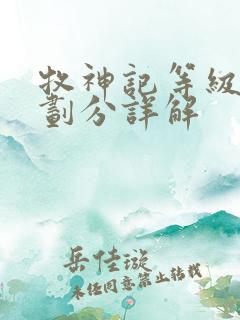 牧神記等級
劃分詳解
岳佳璇
未经同意禁止转载